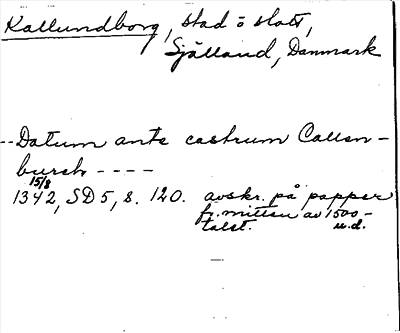 Kallundborg, stad o slott,
Sjålland, Danmark
--Datum ante castrum Callen-
burch ----
15/8
1342, SD 5, s. 120. avskr. på papper
fr. mitten av 1500-
talet. u.d.